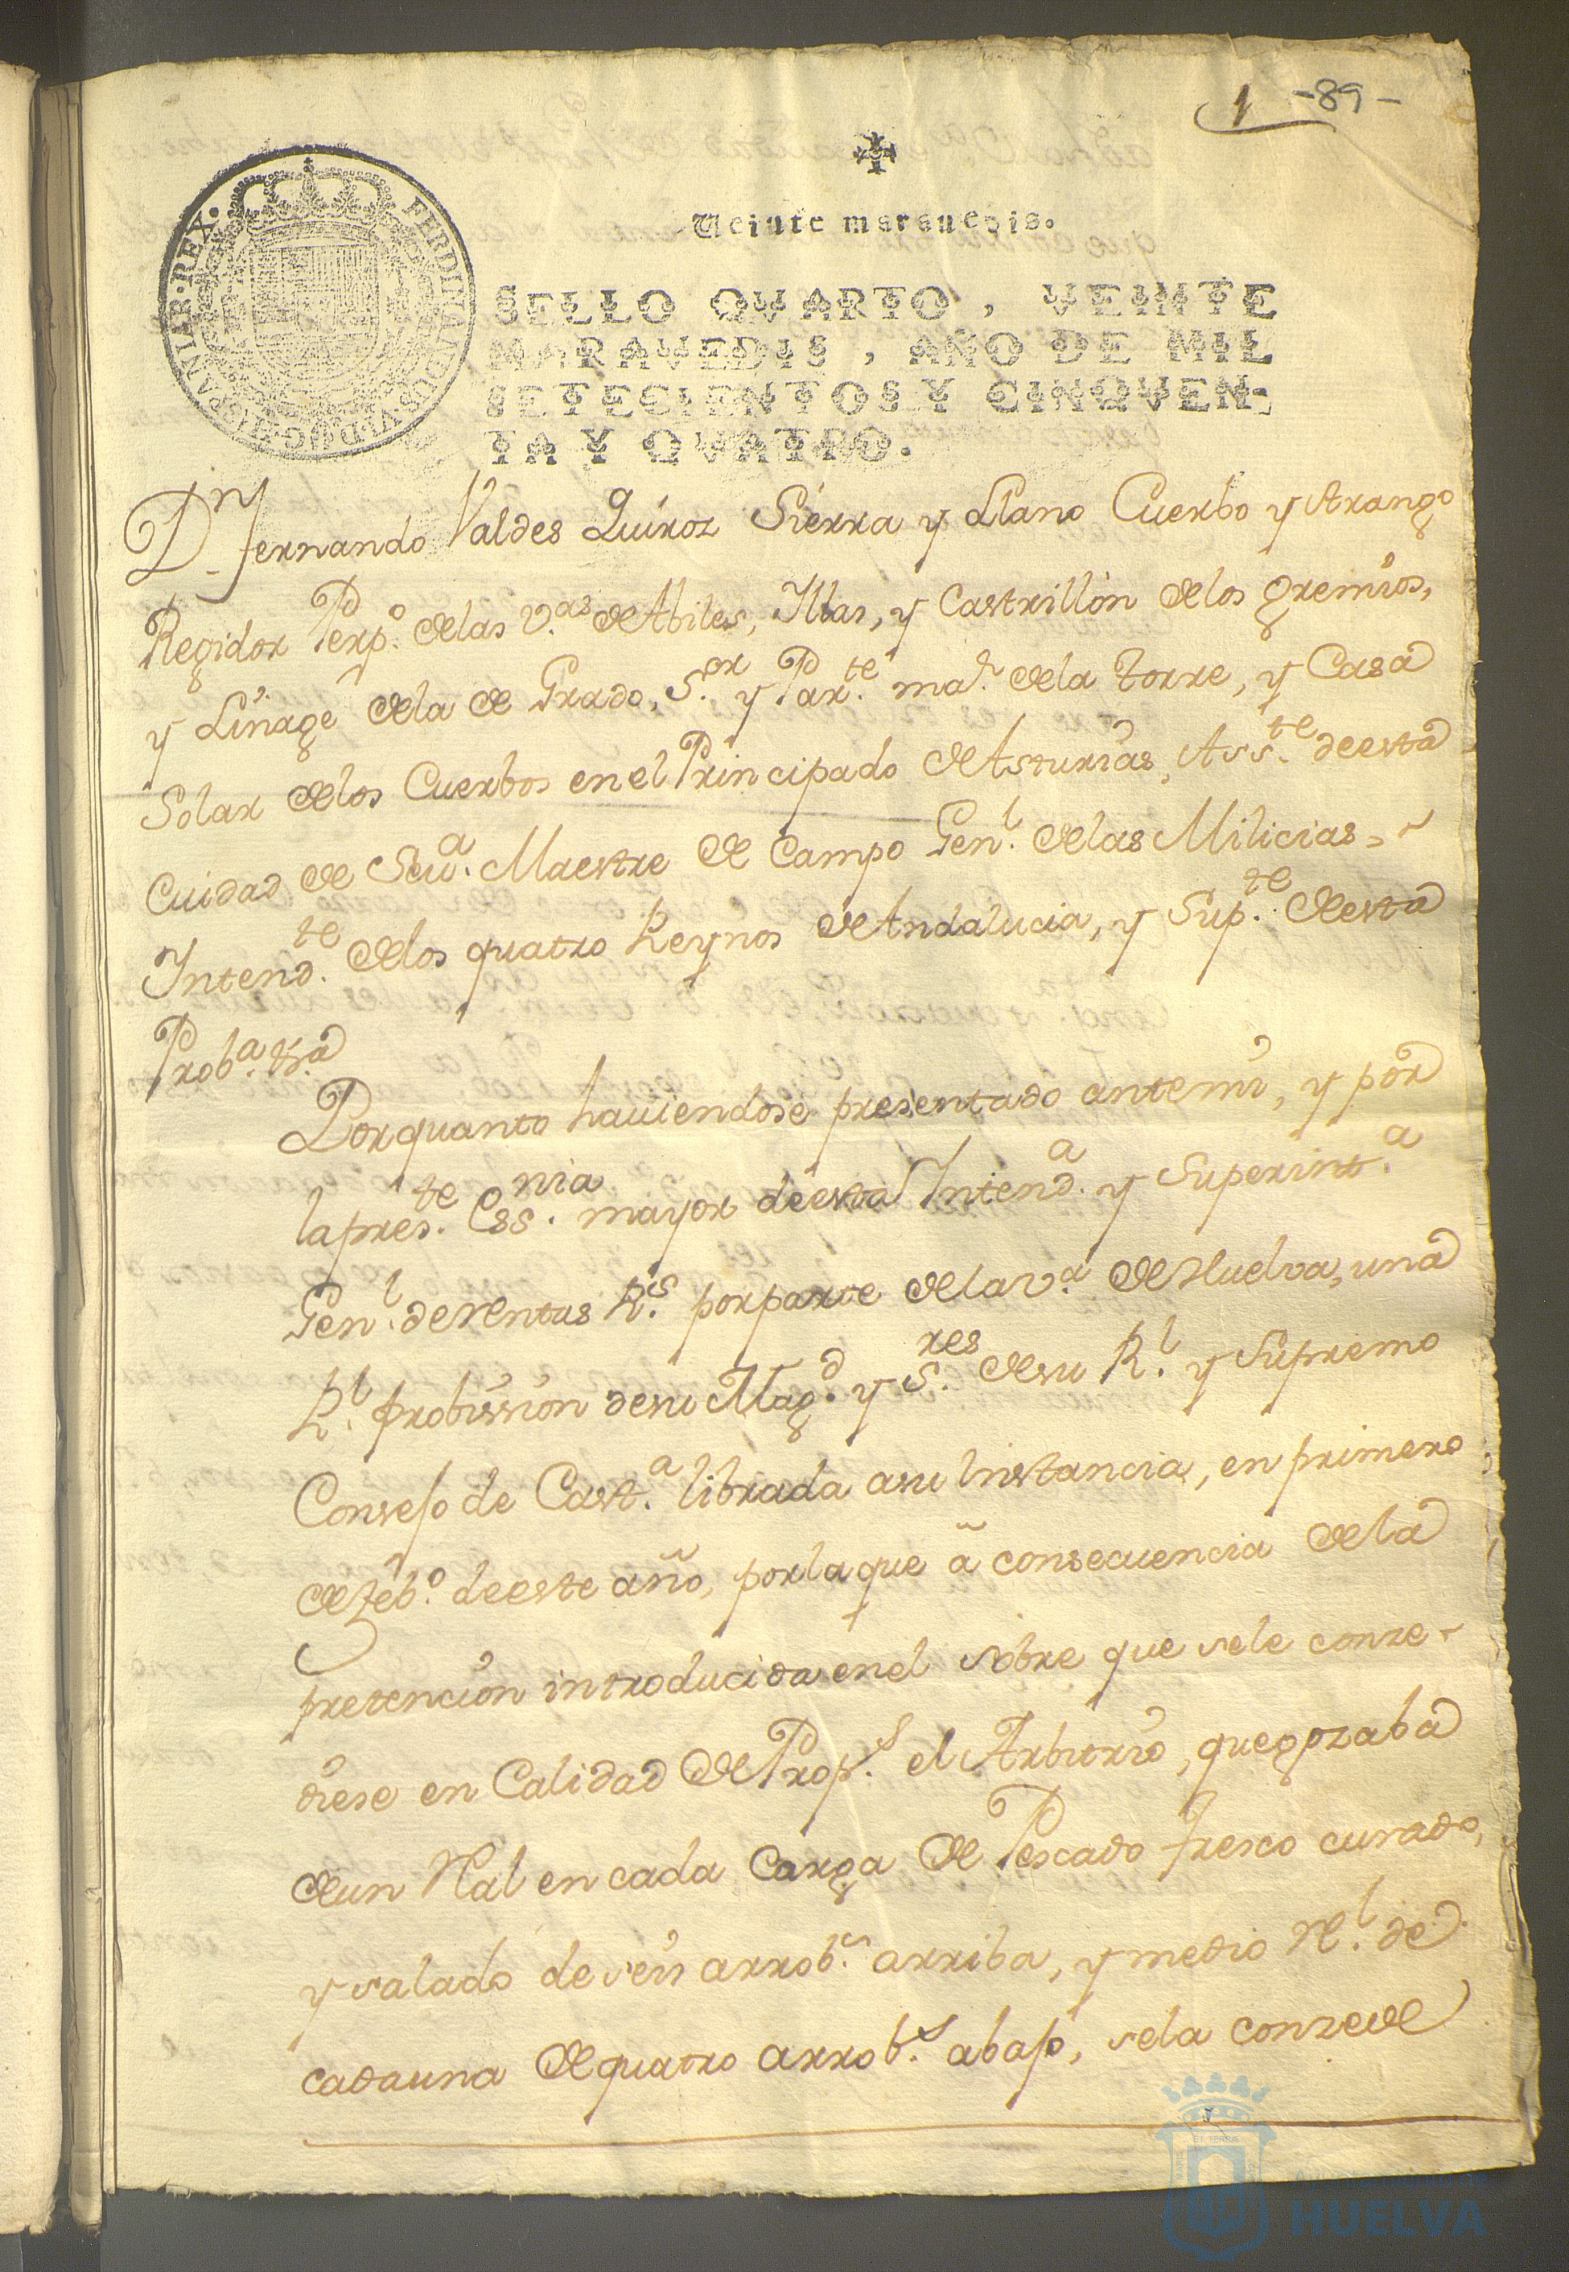 1 -89-
Veinte marauedis.
FERDINANDUS·VI·D·G·HISPANIAR·REX·
SELLO QVARTO, VEINTE
MARAVEDIS, AÑO DE MIL
SETECIENTOS Y CINQVEN-
TA Y QVATRO.
Dn Fernando Valdes Quiroz Sierra y Llano Cuerbo y Arango
Regidor Perp.o delas V.as de Abiles, Illas, y Castrillón delos gremios,
y Linage dela de Grado, S.or y Par.te ma.r dela torre, y Casa
Solar delos Cuerbos en el Principado de Asturias, Ass.te de esta
Cuidad de Seu.a Maestre de Campo Gen.l delas Milicias
Intend.te delos quatro Reynos de Andalucia, y Sup.te de esta
Prob.a &.a
Porquanto hauiendose presentado antemi, y por
lapres.te Ess.nia mayor de esta Intend.a y Superint.a
Gen.l de rentas R.s por parte dela v.a de Huelva, una
R.l probission de su Mag.d y S.res de su R.l y Supremo
Consejo de Cast.a librada asu instancia, en primero
de feb.o de este año, porla que â consecuencia dela
pretencion introducida enel sobre que sele conze-
diese en Calidad de Prop.s el Arbitrio, que gozaba
de un Real en cada Carga de Pescado fresco curado,
y salado de seis arrob.s arriba, y medio R.l de
cada una de quatro arrob.s abajo, sela conzede
HUELVA